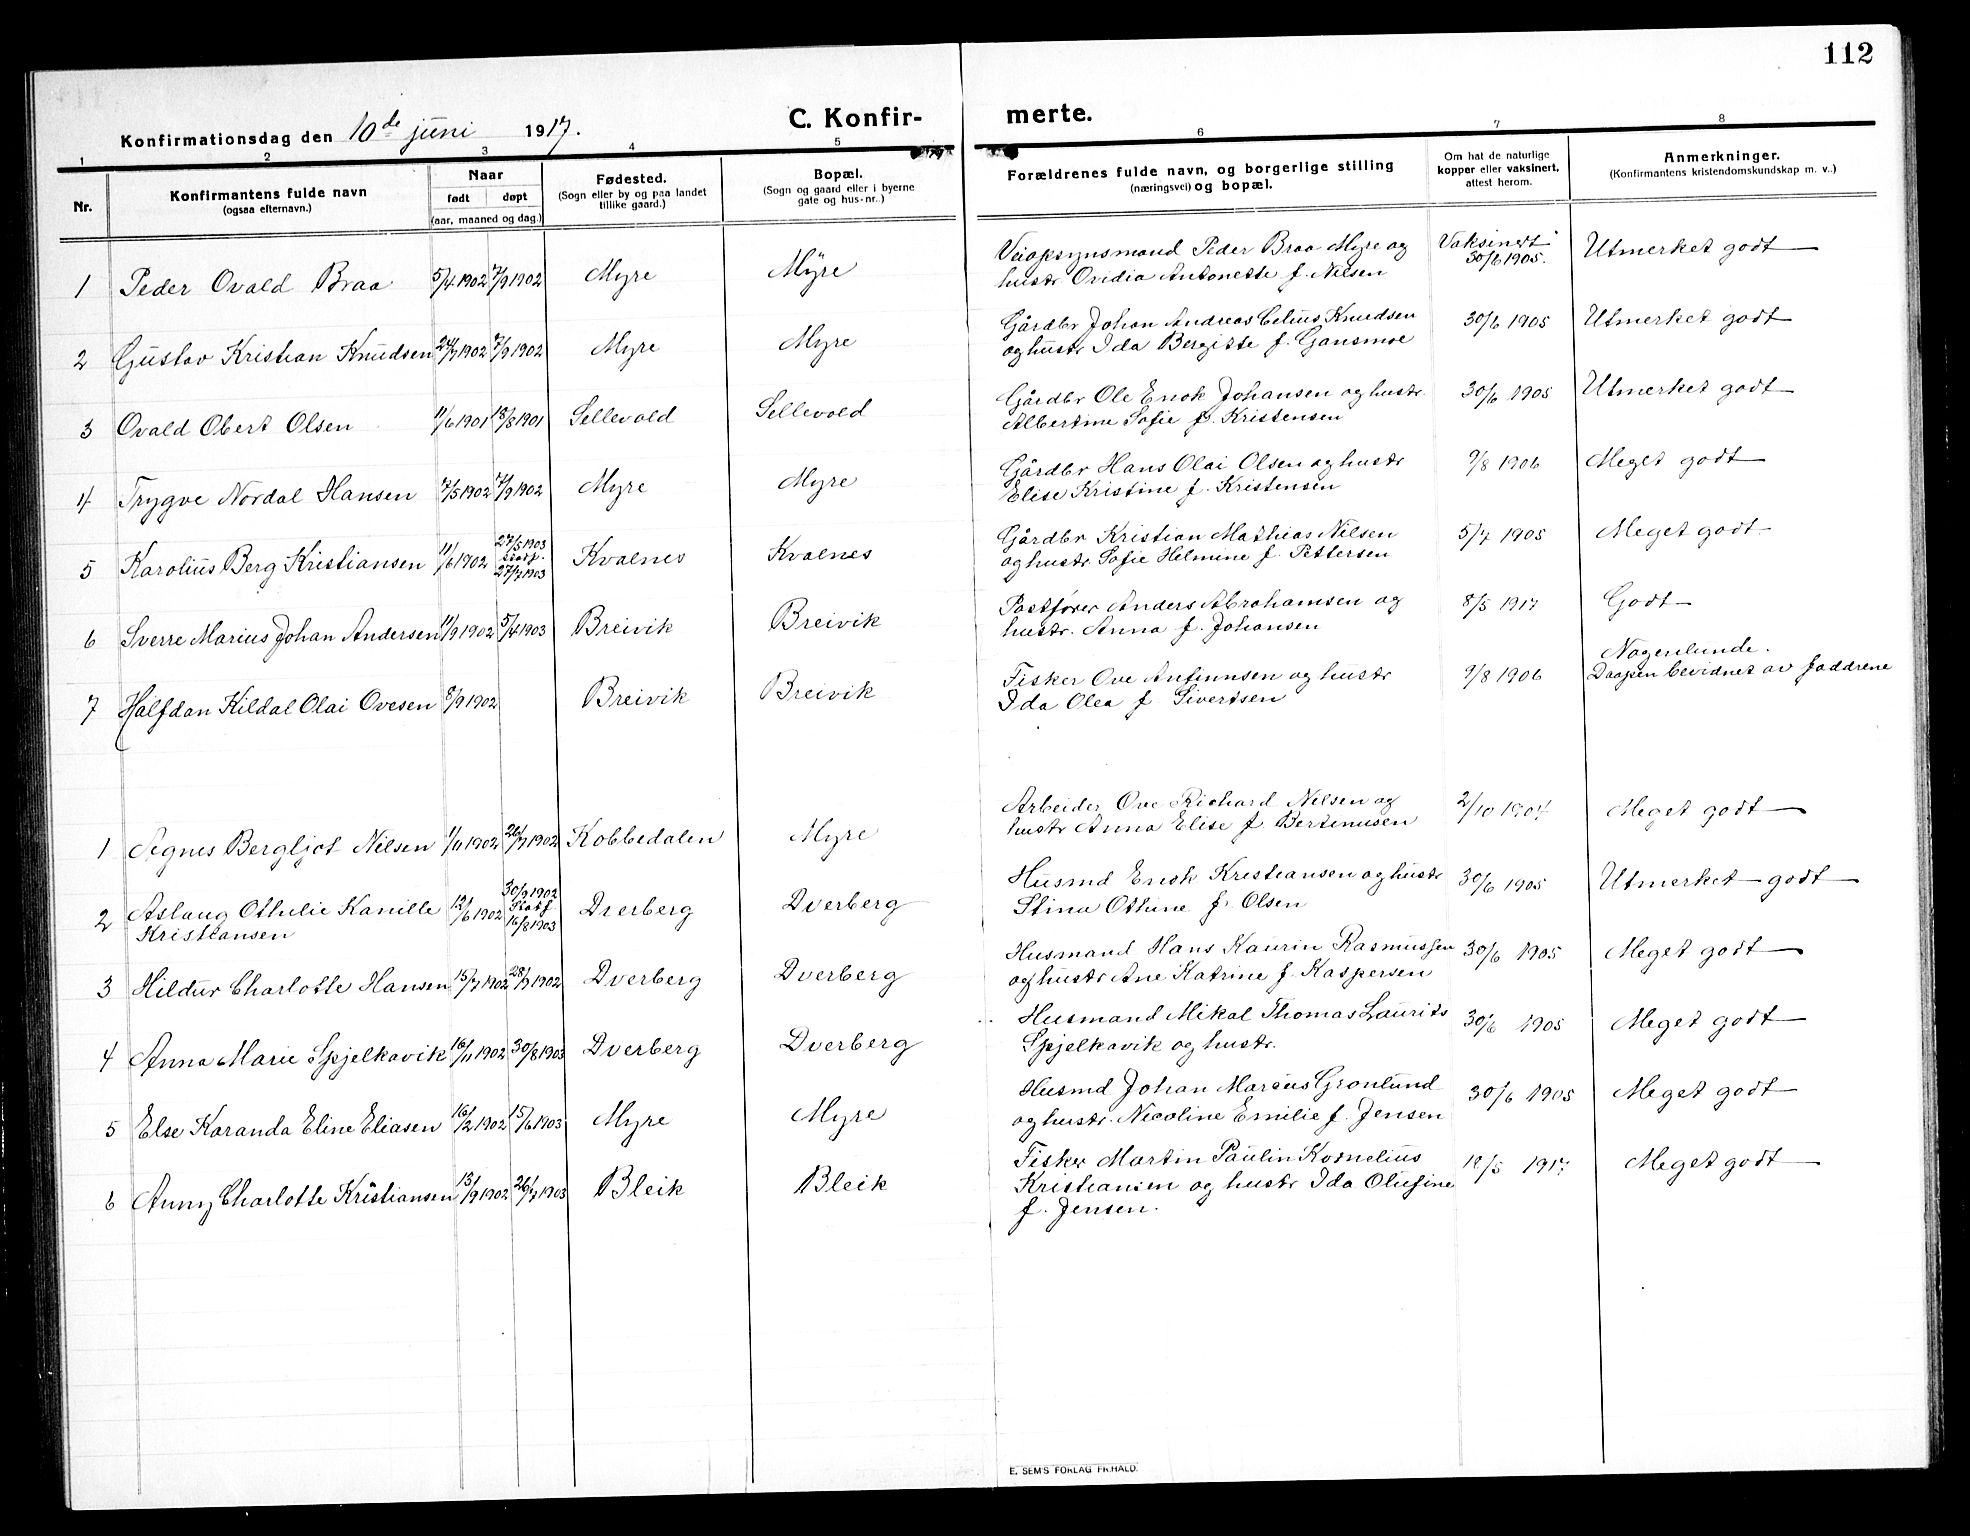 112
Konfirmationsdag den 10de juni 1917.
C. Konfirmerte.
1 2 3 4 5 6 7 8
Nr.
Konfirmantens fulde navn
(ogsaa efternavn.)
Naar
født døpt
(aar, maaned og dag.)
Fødested.
(Sogn eller by og paa landet
tillike gaard.)
Bopæl.
(Sogn og gaard eller i byerne
gate og hus-nr..)
Forældrenes fulde navn, og borgerlige stilling
(næringsvei) og bopæl.
Om hat de naturlige
kopper eller vaksinert,
attest herom.
Anmerkninger.
(Konfirmantens kristendomskundskap m. v..)
1 Peder Ovald Braa 5/4 1902 7/9 1902 Myre Myre Veiopsynsmand Peder Braa Myre og
hustr Ovidia Antonette f. Nilsen
Vaksinert
30/6 1905. Utmerket godt
2 Gustav Kristian Knudsen 24/7 1902 7/9 1902 Myre Myre Gårdbr Johan Andreas Celius Knudsen
og hustr Ida Bergitte f. Gansmoe 30/6 1905 Utmerket godt
3 Ovald Obert Olsen 11/6 1901 18/8 1901 Sellevold Sellevold Gårdbr Ole Enok Johansen og hustr.
Albertine Sofie f. Kristensen 30/6 1905 Utmerket godt
4 Trygve Nordal Hansen 7/5 1902 7/9 1902 Myre Myre Gårdbr Hans Olai Olsen og hustr
Elise Kristine f. Kristensen 9/8 1906 Meget godt
5 Karolius Berg Kristiansen 11/6 1902 27/5 1903
Stadf.
27/7 1903 Kvalnes Kvalnes Gårdbr Kristian Mathias Nilsen
og hustr. Sofie Helmine f. Pettersen 5/7 1905 Meget godt
6 Sverre Marius Johan Andersen 11/9 1902 5/4 1903 Breivik Breivik Postfører Anders Abrahamsen og
hustr. Anna f. Johansen 8/5 1917 Godt
7 Halfdan Kildal Olai Ovesen 8/9 1902 Breivik Breivik Fisker Ove Antinnsen og hustr
Ida Olea f Sivertsen 9/8 1906 Nogenlunde.
Daapen bevidnet av faddrene
1 Agnes Bergljot Nilsen 1/11 1902 26/7 1902 Kobbedalen Myre Arbeider Ove Richard Nilsen og
hustr Anna Elise f. Bertinusen 2/10 1907. Meget godt
2 Aslaug Othelie Kamille
Kristiansen 12/6 1902 30/9 1902
Stadf
16/8 1903 Dverberg Dverberg Husmd Enok Kristiansen og hustr
Stina Othine f. Olsen 30/6 1905 Utmerket godt
3 Hildur Charlotte Hansen 15/7 1902 28/9 1902 Dverberg Dverberg Husmand Hans Kaurin Rasmussen
og hustr Ane Katrine f. Kaspersen 30/6 1905 Meget godt
4 Anna Marie Spjelkavik 16/11 1902 30/8 1903 Dverberg Dverberg Husmand Mikal Thomas Laurits
Spjelkavik og hustr. 30/6 1905 Meget godt
5 Else Karanda Eline Eliasen 16/2 1902 15/6 1903 Myre Myre Husmd Johan Marcus Gronlund
og hustr. Nicoline Emilie f. Jensen 30/6 1905 Meget godt
6 Anny Charlotte Kristiansen 13/9 1902 26/7 1903 Bleik Bleik Fisker Martin Paulin Kornelius
Kristiansen og hustr Ida Olufine
f. Jensen. 12/5 1917. Meget godt
E. SEM'S FORLAG FR.HALD.